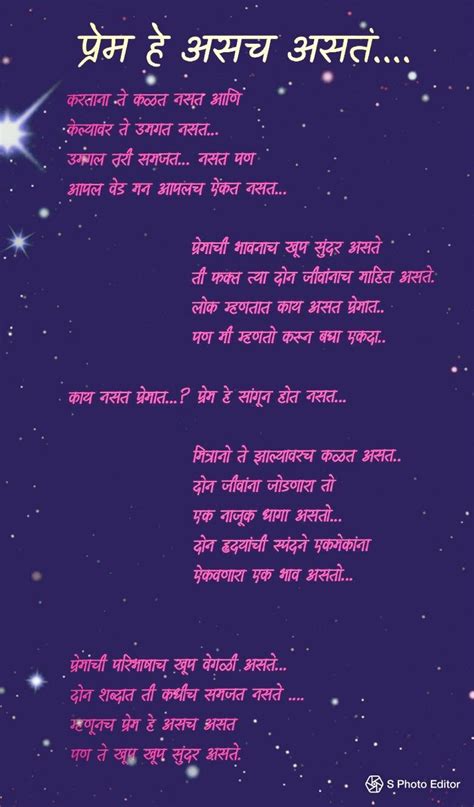 प्रेम हे असच असतं....
करताना ते कळत नसत आणि
केल्यावर ते उमगत नसत...
उमगल तरी समजत... नसत पण
आपल वेड मन आपलच ऐकत नसत...
प्रेमाची भावनाच खूप सुंदर असते
ती फक्त त्या दोन जीवांनाच माहित असते.
लोक म्हणतात काय असत प्रेमात..
पण मी म्हणतो करून बघा एकदा..
काय नसत प्रेमात...? प्रेम हे सांगून होत नसत...
मित्रानो ते झाल्यावरच कळत असत..
दोन जीवांना जोडणारा तो
एक नाजूक धागा असतो...
दोन ह्रदयांची स्पंदने एकमेकांना
ऐकवणारा एक भाव असतो...
प्रेमाची परिभाषाच खूप वेगळी असते...
दोन शब्दात ती कधीच समजत नसते ....
म्हणूनच प्रेम हे असच असत
पण ते खूप खूप सुंदर असते.
S Photo Editor